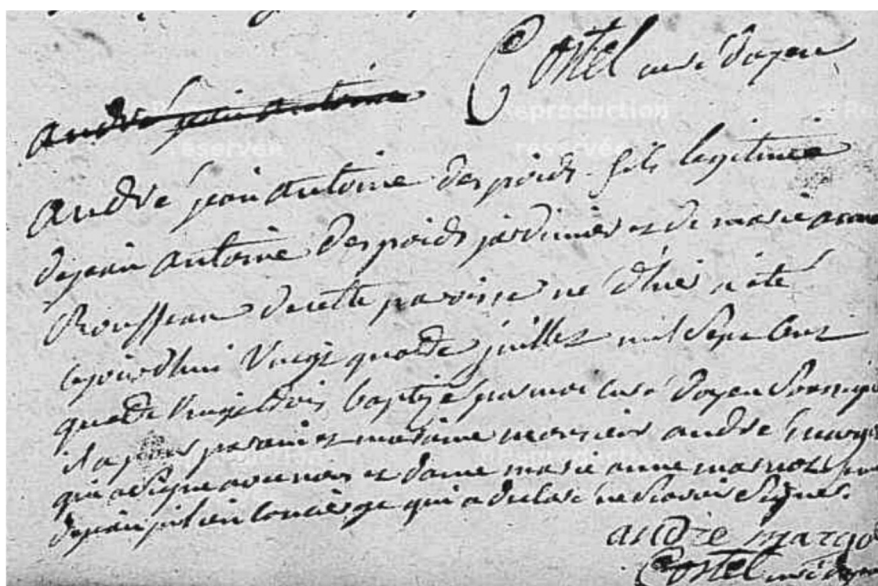 Costel curé doyen
andré jean antoine
andré jean antoine des poids fils legitime
de jean antoine des poids jardinier et de marie anne
Rousseau de cette paroisse né d'hier a été
cejourd'hui vingt quatre juillet mil sept cent
quatre vingt trois baptizé par moi curé doyen soussigné
il a pour parain et maraine monsieur andré
qui a signé avec nous et dame marie anne
de jean julien concierge qui a declaré ne scavoir signer.
andré margo
Costel curé doyen